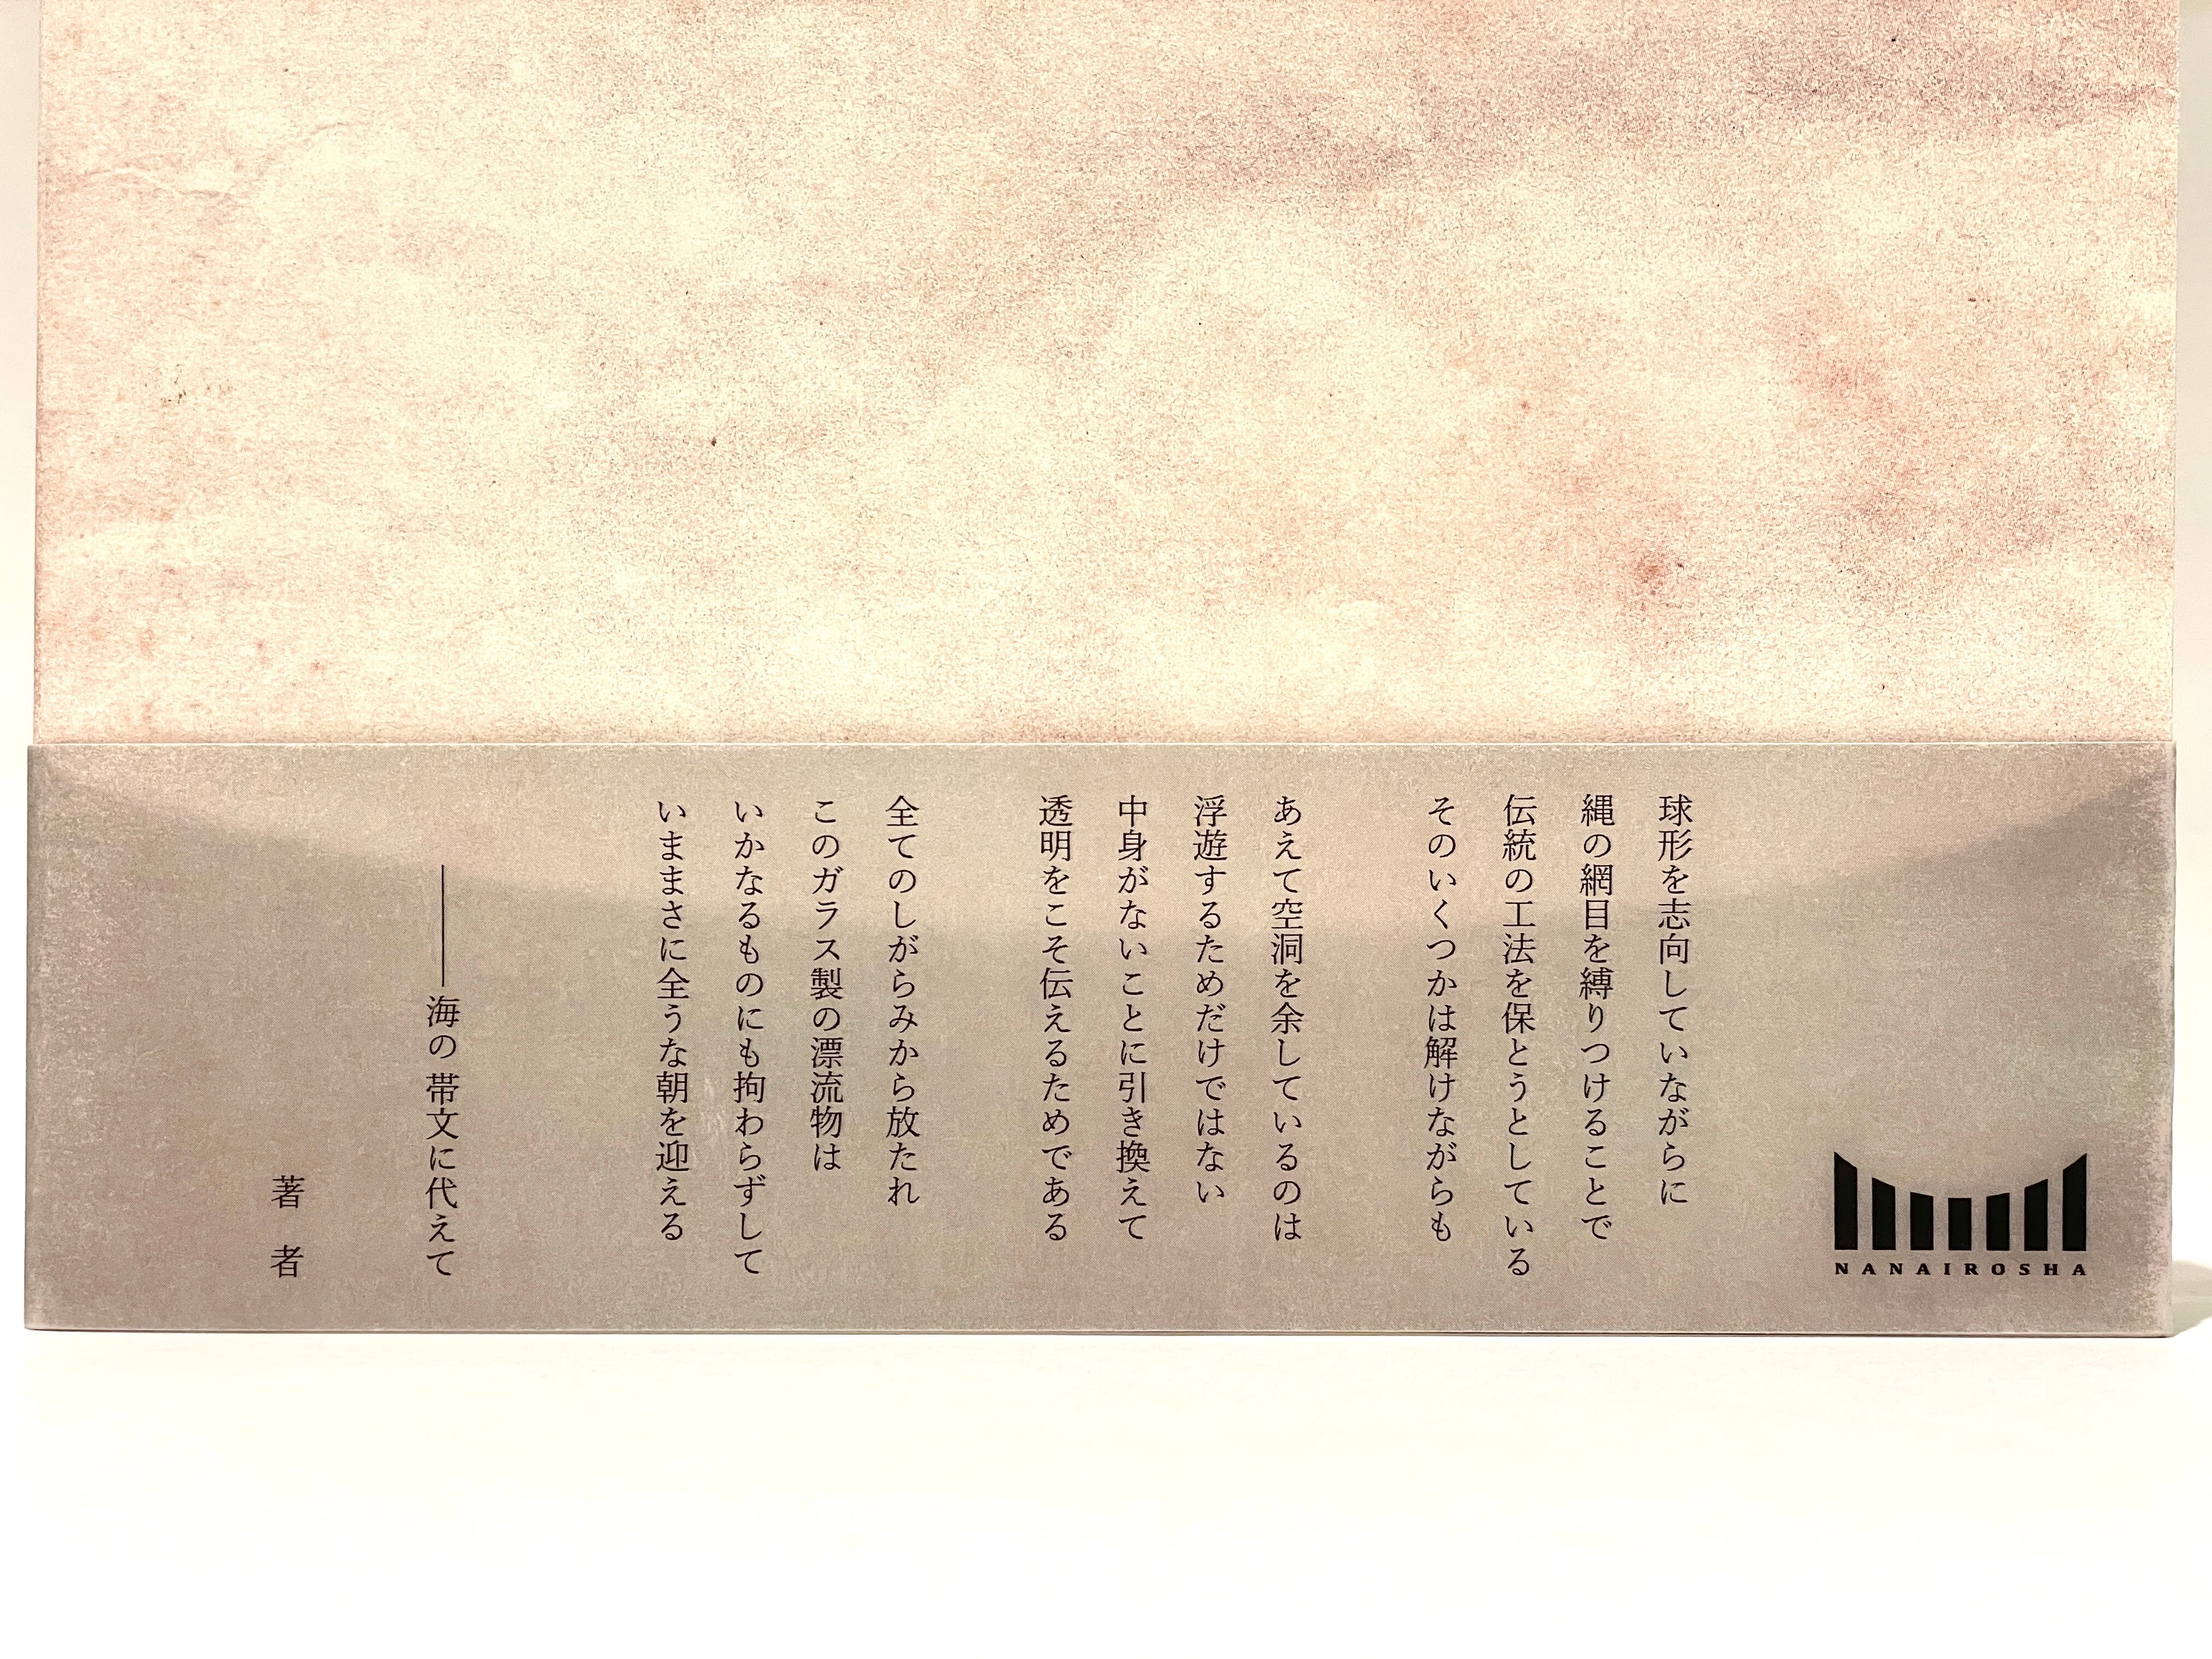 球形を志向していながらに
縄の網目を縛りつけることで
伝統の工法を保とうとしている
そのいくつかは解けながらも
あえて空洞を余しているのは
浮遊するためだけではない
中身がないことに引き換えて
透明をこそ伝えるためである
全てのしがらみから放たれ
このガラス製の漂流物は
いかなるものにも拘わらずして
いままさに全うな朝を迎える
――海の帯文に代えて
著者
NANAIROSHA